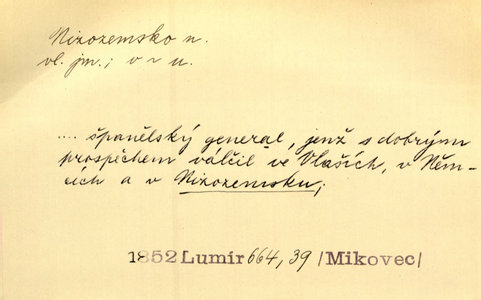 Nizozemsko n.
vl. jm.; v r u.
.... španělský general, jenž s dobrým
prospěchem válčil ve Vlaších, v Něm-
cích a v Nizozemsku;
1852 Lumír 664, 39 /Mikovec/